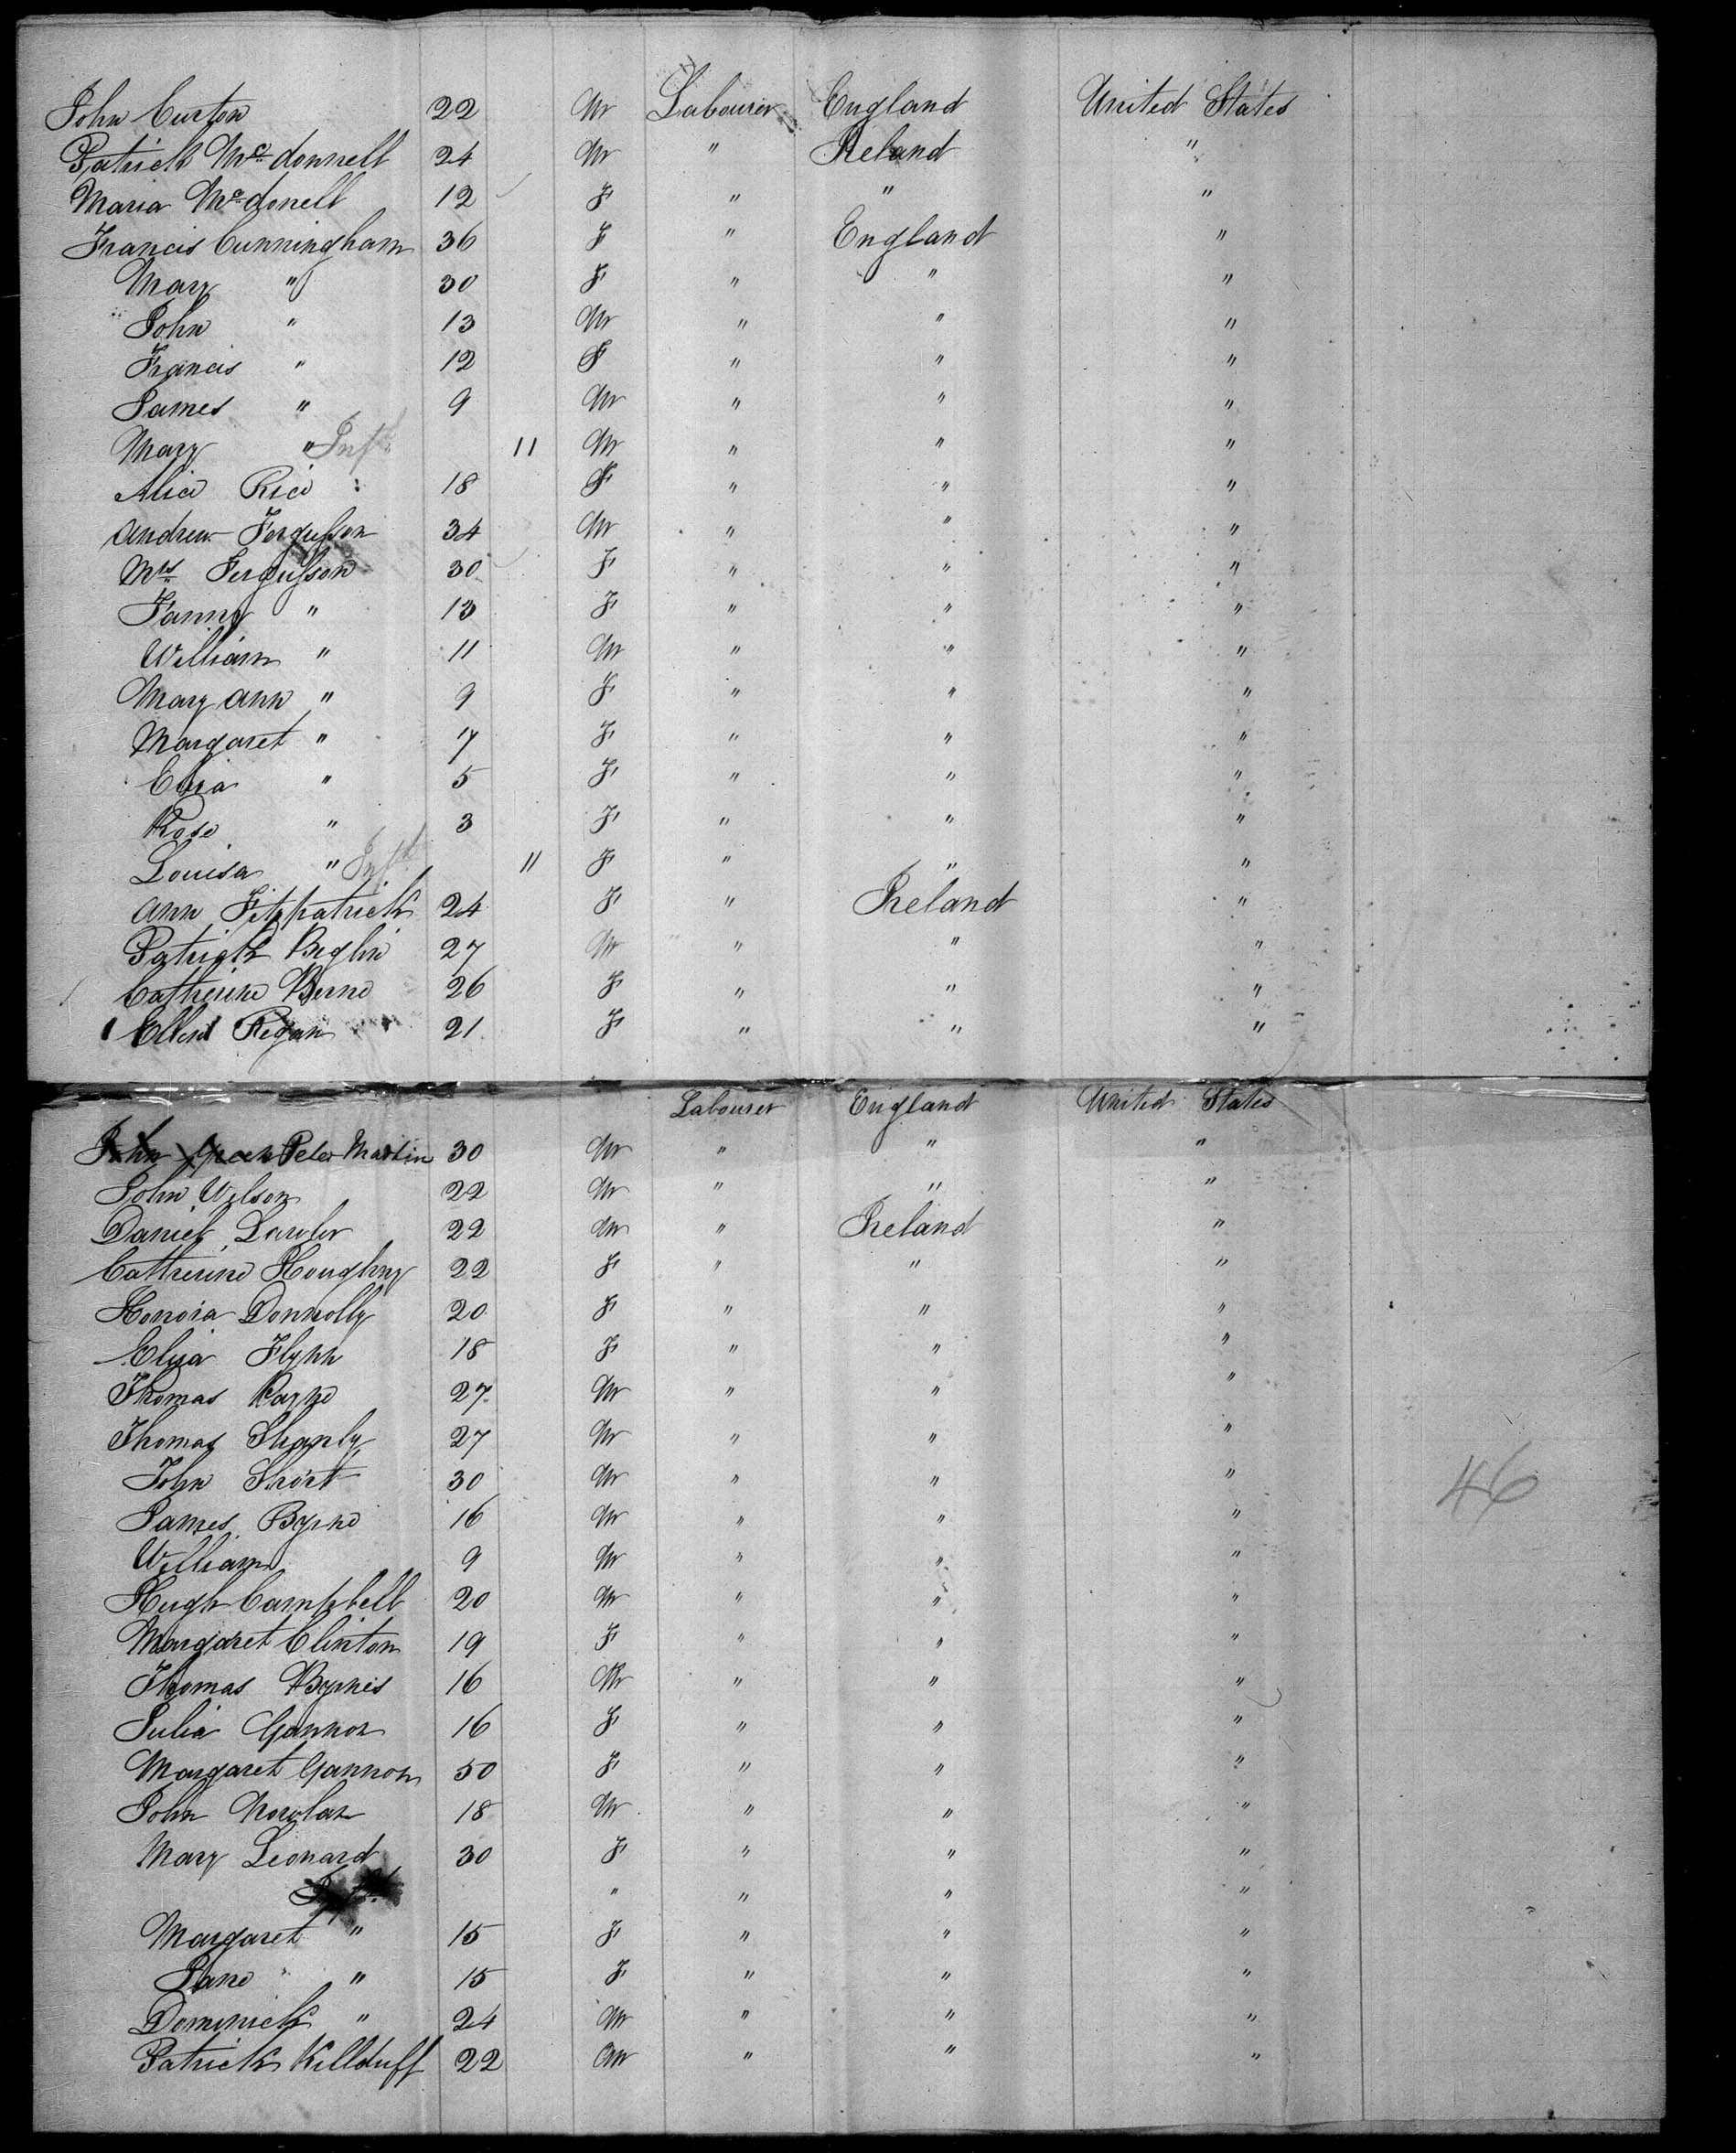 John Curton 22 M Labourer England United States
Patrick Mc donnell 24 M " Ireland "
Maria Mc donell 12 F " " "
Francis Cunningham 36 F " England "
Mary " 30 F " " "
John " 13 M " " "
Francis " 12 F " " "
James " 9 M " " "
Mary " Inft 11 M " " "
Alice Rice 18 F " " "
Andrew Fergusson 34 M " " "
Mrs Fergusson 30 F " " "
Fanny " 13 F " " "
William " 11 M " " "
Mary Ann " 9 F " " "
Margaret " 7 F " " "
Eliza " 5 F " " "
Rose " 3 F " " "
Louisa " Inft 11 F " " "
Ann Fitzpatrick 24 F " Ireland "
Patrick Beglin 27 M " " "
Catherine Berne 26 F " " "
Ellen Regan 21 F " " "
Labourer England United States
John Peter Martin 30 M " " "
John Wilson 22 M " " "
Daniel Lawler 22 M " Ireland "
Catherine Houghny 22 F " " "
Honora Donnolly 20 F " " "
Eliza Flynn 18 F " " "
Thomas 27 M " " "
Thomas Shanly 27 M " " "
John Short 30 M " " "
James Byrne 16 M " " "
William 9 M " " "
Hugh Campbell 20 M " " "
Margaret Clinton 19 F " " "
Thomas Byrnes 16 M " " "
Julia Gannon 16 F " " "
Margaret Gannon 50 F " " "
John Nowlan 18 M " " "
Mary Leonard 30 F " " "
" " " "
Margaret " 15 F " " "
Jane " 15 F " " "
Dominick " 24 M " " "
Patrick Killduff 22 M " " "
46